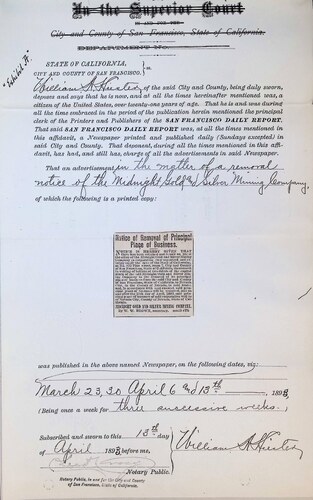 In the Superior Court
IN AND FOR THE
City and County of San Francisco, State of California.
DEPARTMENT No.
"Exhibit A"
STATE OF CALIFORNIA,
CITY AND COUNTY OF SAN FRANCISCO. } ss.
William H. of the said City and County, being duly sworn,
deposes and says that he is now, and at all the times hereinafter mentioned was, a
citizen of the United States, over twenty-one years of age. That he is and was during
all the times embraced in the period of the publication herein mentioned the principal
clerk of the Printers and Publishers of the SAN FRANCISCO DAILY REPORT.
That said SAN FRANCISCO DAILY REPORT was, at all the times mentioned in
this affidavit, a Newspaper printed and published daily (Sundays excepted) in
said City and County. That deponent, during all the times mentioned in this affi-
davit, has had, and still has, charge of all the advertisements in said Newspaper.
That an advertisement in the matter of a removal
notice of the Midnight Gold & Silver Mining Company,
of which the following is a printed copy:
Notice of Removal of Principal
Place of Business.
NOTICE IS HEREBY GIVEN THAT
MIDNIGHT GOLD AND SILVER MINING COMPANY,
was published in the above named Newspaper, on the following dates, viz:
March 23, 30 April 6 & 13th 189
(Being once a week for three successive weeks.)
Subscribed and sworn to this 13th
day
of April 189 before me,
William H.
Notary Public.
Notary Public, in and for the City and County
of San Francisco, State of California.